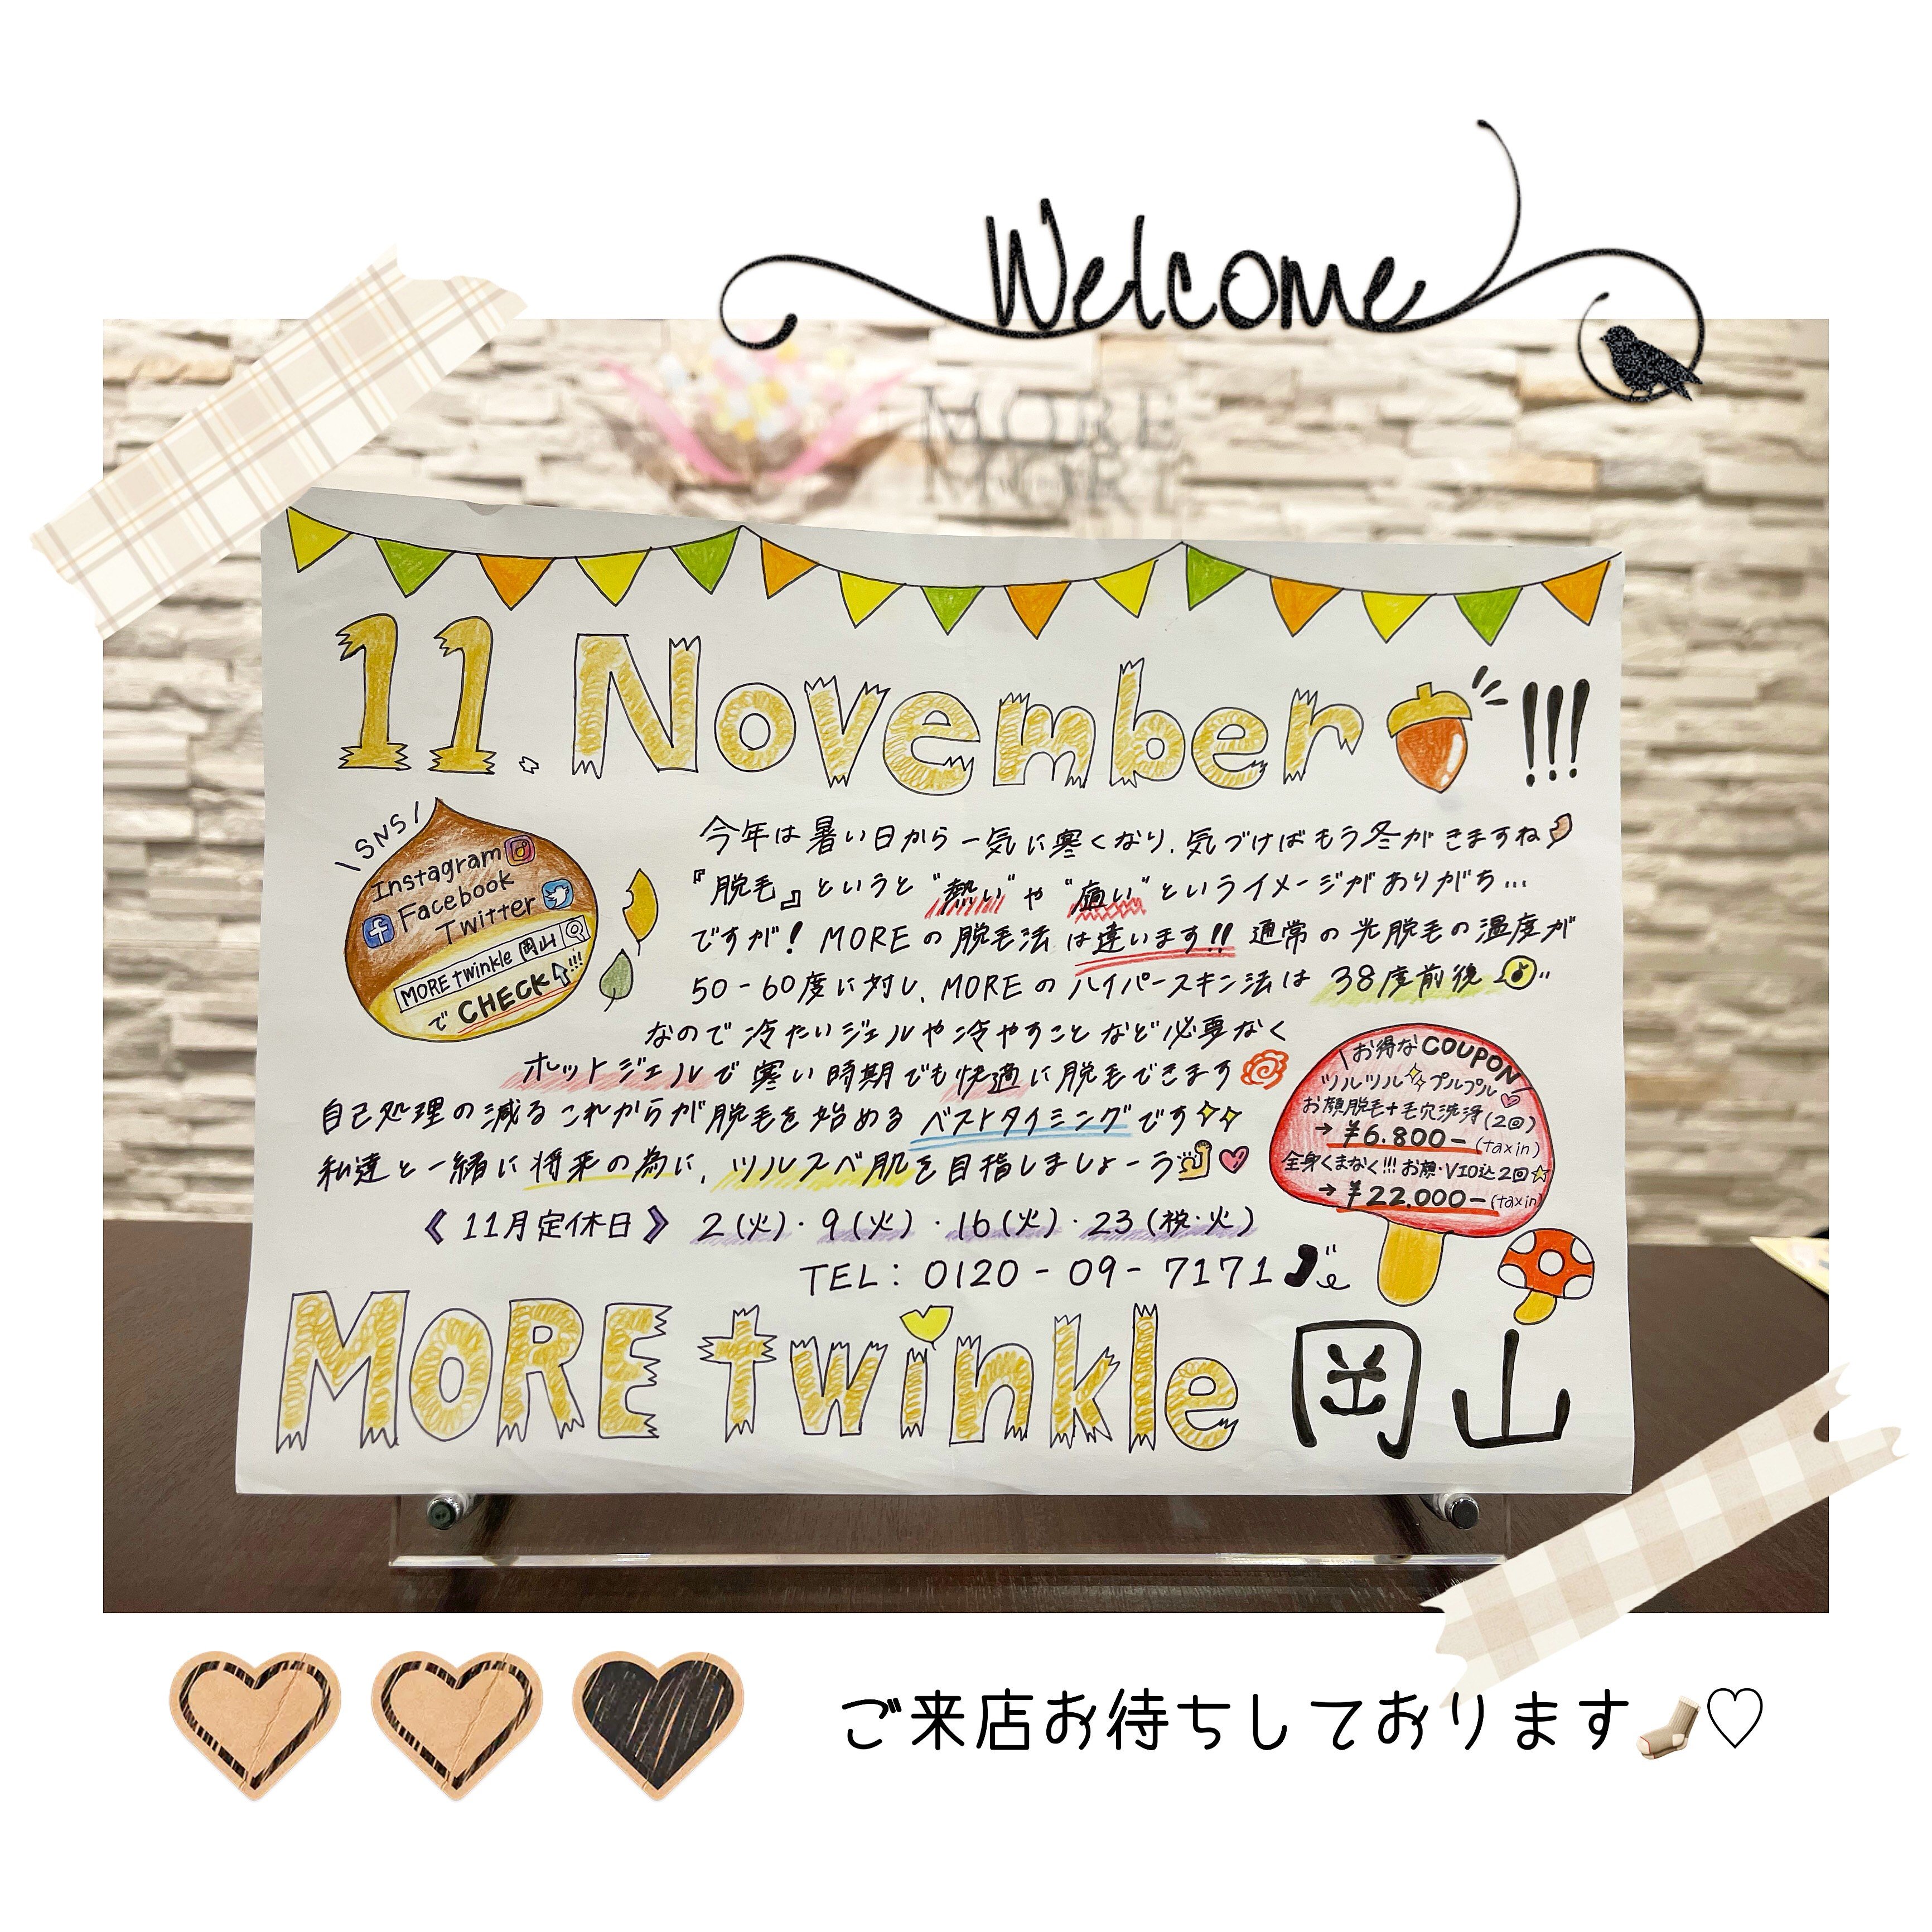 Welcome
MORE
11. November !!!
\SNS/
Instagram
Facebook
Twitter
MORE twinkle 岡山
で CHECK!!!
今年は暑い日から一気に寒くなり、気づけばもう冬がきますね
『脱毛』というと"熱い"や"痛い"というイメージがありがち…
ですが! MOREの脱毛法は違います!! 通常の光脱毛の温度が
50-60度に対し、MOREのハイパースキン法は 38度前後
なので冷たいジェルや冷やすことなど必要なく
ホットジェルで寒い時期でも快適に脱毛できます
自己処理の減るこれからが脱毛を始めるベストタイミングです
私達と一緒に将来の為に、ツルスベ肌を目指しましょーう
\お得なCOUPON/
ツルツル プルプル
お顔脱毛+毛穴洗浄(2回)
→ ¥6.800-(taxin)
全身くまなく!!! お顔・VIO込2回☆
→ ¥22.000-(taxin)
《11月定休日》 2(火)・9(火)・16(火)・23(祝・火)
TEL: 0120-09-7171
MORE twinkle 岡山
ご来店お待ちしております♡